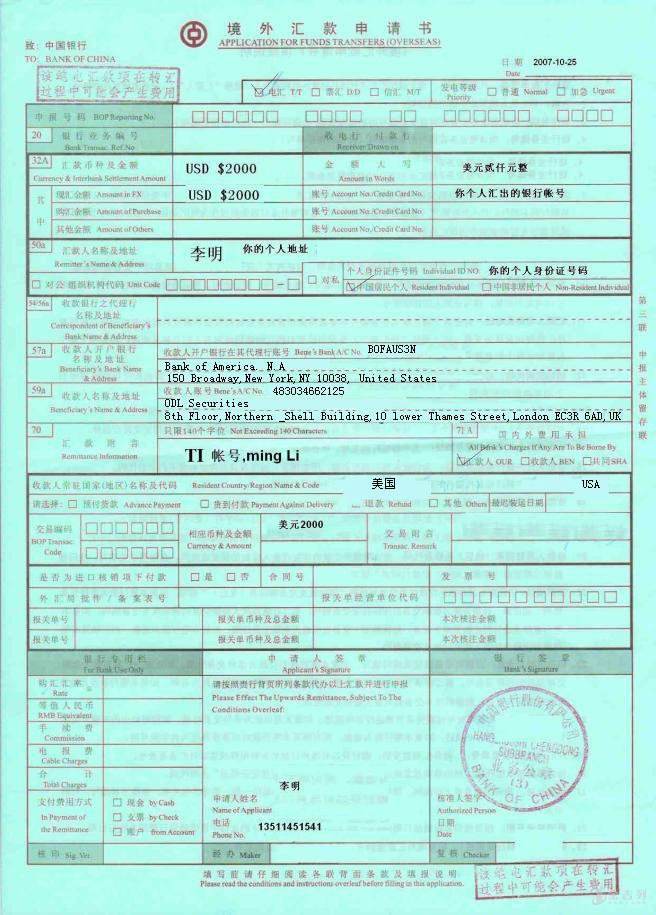 境外汇款申请书
APPLICATION FOR FUNDS TRANSFERS (OVERSEAS)
致: 中国银行
TO: BANK OF CHINA
日期 2007-10-25
Date
该笔电汇款项在转汇
过程中可能会产生费用
电汇 T/T 票汇 D/D 信汇 M/T 发电等级 Priority 普通 Normal 加急 Urgent
申报号码 BOP Reporting No.
20 银行业务编号 Bank Transac. Ref.No 收电行/付款行 Receiver/Drawn on
32A 汇款币种及金额 Currency & Interbank Settlement Amount USD $2000 金额大写 Amount in Words 美元贰仟元整
其中 现汇金额 Amount in FX USD $2000 账号 Account No./Credit Card No. 你个人汇出的银行帐号
购汇金额 Amount of Purchase 账号 Account No./Credit Card No.
其他金额 Amount of Others 账号 Account No./Credit Card No.
50a 汇款人名称及地址 Remitter's Name & Address 李明 你的个人地址
对公 组织机构代码 Unit Code 对私 个人身份证件号码 Individual ID NO. 你的个人身份证号码
中国居民个人 Resident Individual 中国非居民个人 Non-Resident Individual
54/56a 收款银行之代理行
名称及地址
Correspondent of Beneficiary's
Bank Name & Address
57a 收款人开户银行
名称及地址
Beneficiary's Bank Name
& Address
收款人开户银行在其代理行账号 Bene's Bank A/C No. BOFAUS3N
Bank of America. N.A
150 Broadway,New York,NY 10038, United States
59a 收款人名称及地址
Beneficiary's Name & Address
收款人账号 Bene's A/C No. 483034662125
ODL Securities
8th Floor,Northern Shell Building,10 lower Thames Street,London EC3R 6AD,UK
70 汇款附言 Remittance Information
只限140个字位 Not Exceeding 140 Characters
TI 帐号,ming Li
71A 国内外费用承担
All Bank's Charges If Any Are To Be Borne By
汇款人 OUR 收款人 BEN 共同 SHA
收款人常驻国家(地区)名称及代码 Resident Country/Region Name & Code 美国 USA
请选择: 预付货款 Advance Payment 货到付款 Payment Against Delivery 退款 Refund 其他 Others 最迟装运日期
交易编码 BOP Transac. Code 相应币种及金额 Currency & Amount 美元2000 交易附言 Transac. Remark
是否为进口核销项下付款 是 否 合同号 发票号
外汇局批件/备案表号 报关单经营单位代码
报关单号 报关单币种及总金额 本次核注金额
报关单号 报关单币种及总金额 本次核注金额
银行专用栏 For Bank Use Only 申请人签章 Applicant's Signature 银行签章 Bank's Signature
购汇汇率 Rate
等值人民币 RMB Equivalent
手续费 Commission
电报费 Cable Charges
合计 Total Charges
支付费用方式
In Payment of
the Remittance
现金 by Cash
支票 by Check
账户 from Account
请按照贵行背页所列条款代办以上汇款并进行申报
Please Effect The Upwards Remittance, Subject To The
Conditions Overleaf:
李明
申请人姓名
Name of Applicant
电话
Phone No. 13511451541
中国银行股份有限公司
SUBBRANCH
业务公章
(3)
BANK OF CHINA
核准人签字
Authorized Person
日期
Date
核印 Sig. Ver. 经办 Maker 复核 Checker
填写前请仔细阅读各联背面条款及填报说明
Please read the conditions and instructions overleaf before filling in this application.
该笔电汇款项在转汇
过程中可能会产生费用
第三联 申报主体留存联